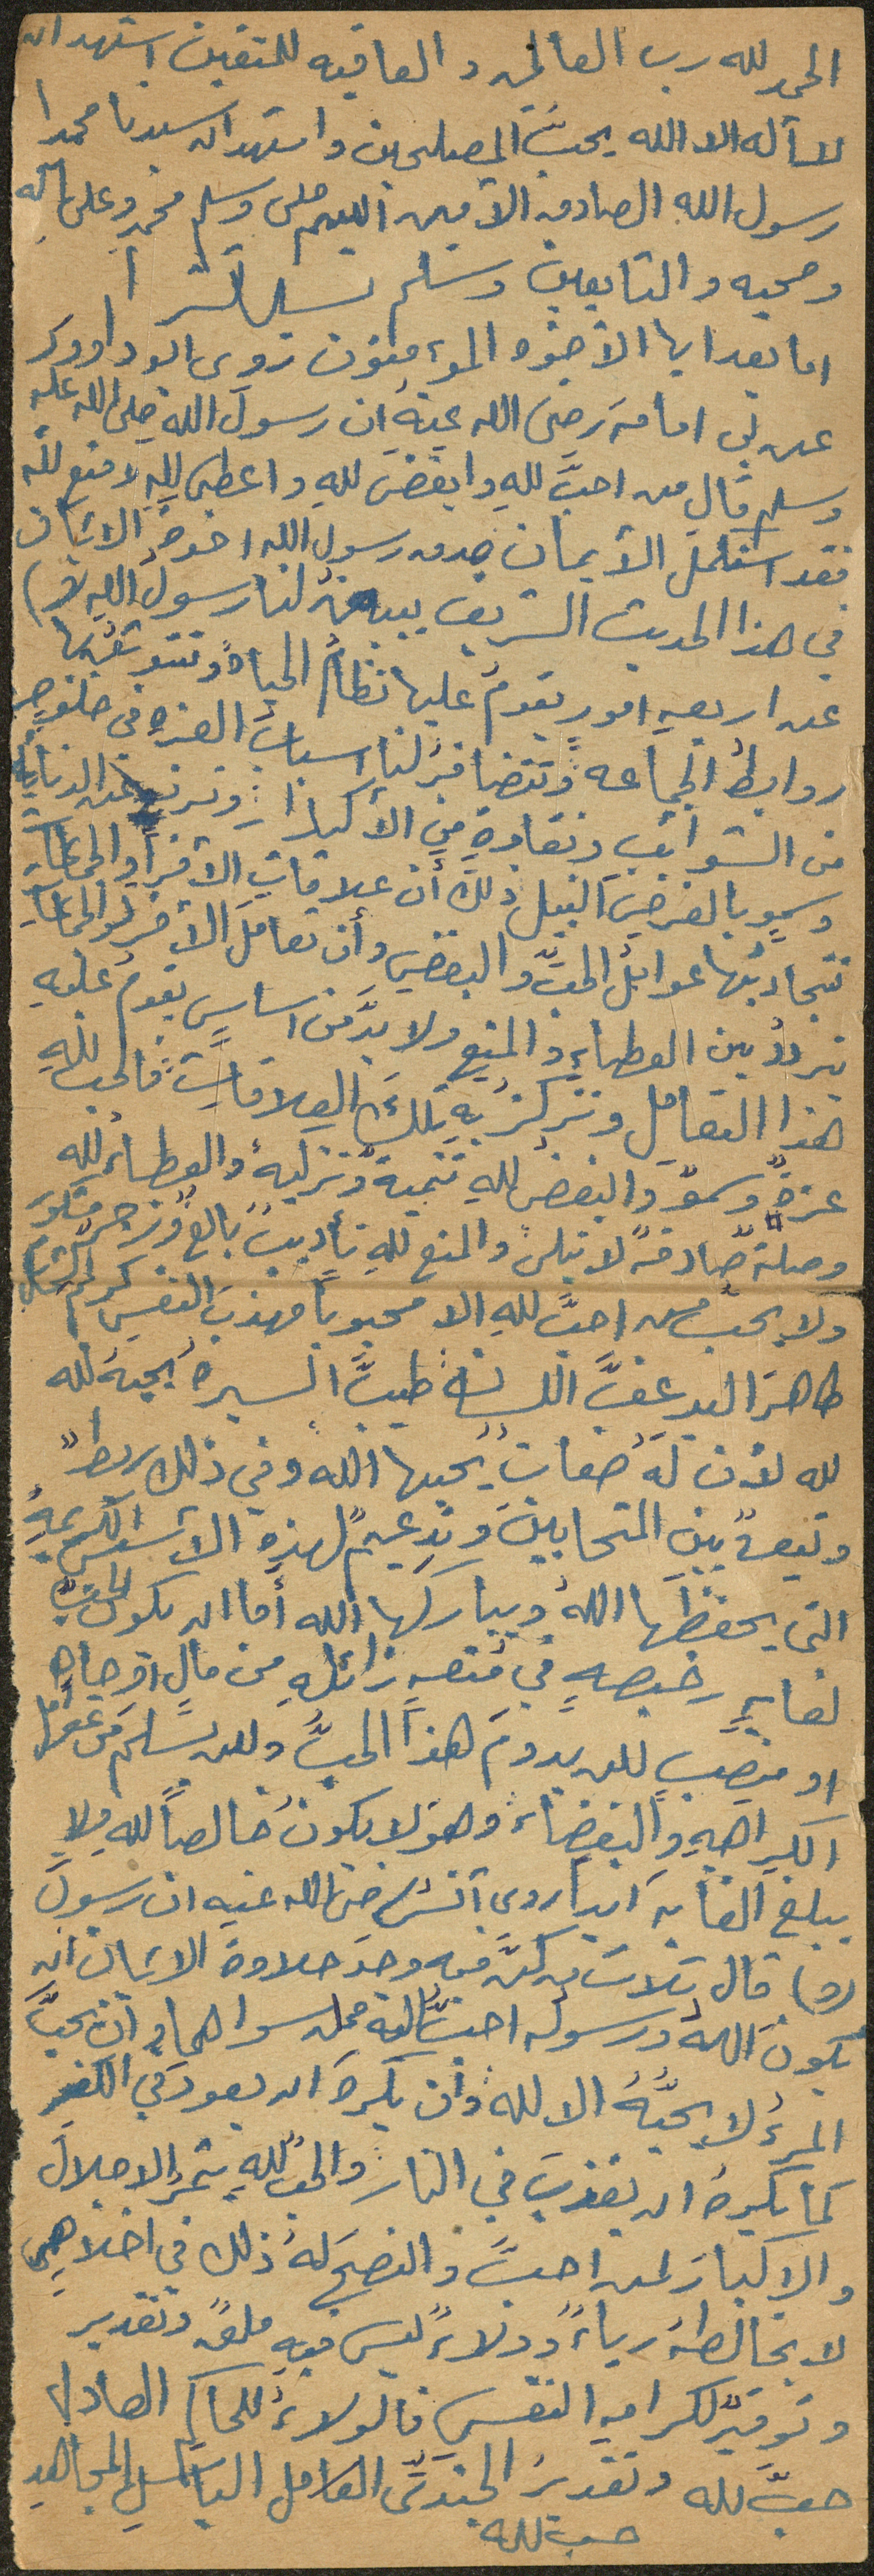 الحمد لله رب العالمين والعاقبه للمتقين استهد ان
لا اله الا الله يحبَّ المصلحين واستهد ان سيدنا محمدا
رسول الله الصادق الأمين اللهم صلى وسلم محمدٍ وعلى آله
وصحبه والتابعين وسلم
اما بعد ايها الأخوه المؤمنون روى ابو داوود
عن ابي امامه رضى الله عنه ان رسول الله صلى الله عليه
وسلم قال من احبَّ للهِ وابغض للهِ واعطى للهِ ومنع للهِ
فقد استكمل الأيمان صدق رسول الله اخوة الايمان
في هذا الحديث الشريف يبينُ لنا رسول اللهِ (ص)
عن اربعهِ امورٍ يقومُ عليها نظامُ الحياةِ وتتوثقُ بها
روابطُ الجماعه وتتضافرُ لنا اسبابُ العزه في خلوصٍ
من الشوائب ونقاوةٍ من الأكدارِ وترفعٍ عن الدنايا
وسموٍ بالغرضِ النبيل ذلك أن علاقاتِ الأفرادِ والجماعاتِ
تتجاذبُها عواملُ الحبِّ والبغضِ وأن تعاملَ الأفراد والجماعاتِ
يترددُ بين العطاءِ والمنعِ ولا بدَّ من اساسٍ يقومُ عليهِ
هذا التعامل وتتركزُ بهِ تلك العلاقاتِ فالحب للهِ
عزةٌ وسموٌ والبغضُ للهِ تنميةٌ وتزكيهٌ والعطاءُ لله
وصلةٌ صادقهٌ لا تبلى والمنع للهِ تأديبٌ بالغٌ وزجرٌ
ولا يحبُّ من احبَّ للهِ الا محبوباً مهذبَ النفسِ كريمَ
طاهرَ اليدِ عفَّ اللسانِ طيبَّ السيرهِ يحبهُ لله
لله لأن لهُ صفاتٌ يحبها الله وفي ذلك ربطٌ
وثيقٌ بين المتحابينَ وتدعيمٌ لهذهِ الأسسِ الكريمهِ
التي يحفظُها اللهُ ويباركها الله أما ان يكون الحبُّ
لغايهٍ رخيصهٍ في متعهٍ زائلهِ من مالٍ او جاهٍ
او منصبٍ فلن يدومَ هذا الحبُّ ولن يسلم من عواملِ
الكراهيهِ والبغضاءِ وهو لا يكونُ خالصاً للهِ ولا
يبلغ الغايه ابدا روى أنسٌ رضى الله عنه ان رسولَ
(ص) قال ثلاث من كنَّ فيه وجد حلاوة الايمان ان
يكونَ اللهُ ورسوله احبَّ اليه مما سواهما وان يحبَّ
المرءُ لا يحبَّهُ الا للهِ وأن يكرهَ ان يعودَ في الكفر
كما يكره ان يقذفَ في النار والحب للهِ يثمرُ الاجلال
والاكبارَ لمن احبَّ والنصحَ لهُ ذلك في اخلاصٍ
لا يخالطهُ رياءٌ وولاءٌ ليس فيهِ ملقٌ وتقدير
وتوقيرٌ لكرامهِ النفس فالولاءُ للحاكمِ العادل
حبٌّ لله وتقديرُ الجندىِّ العامل الباسلِ المجاهدِ
حب لله